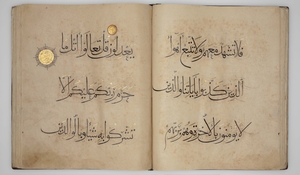 فلا تشهد معهم ولا تتبع اهواء
الذين كذبوا باياتنا والذين
لا يؤمنون بالاخرة وهم بربهم
يعدلون قل تعالوا اتل ما
حرم ربكم عليكم الا
تشركوا به شيئا وبالوالدين